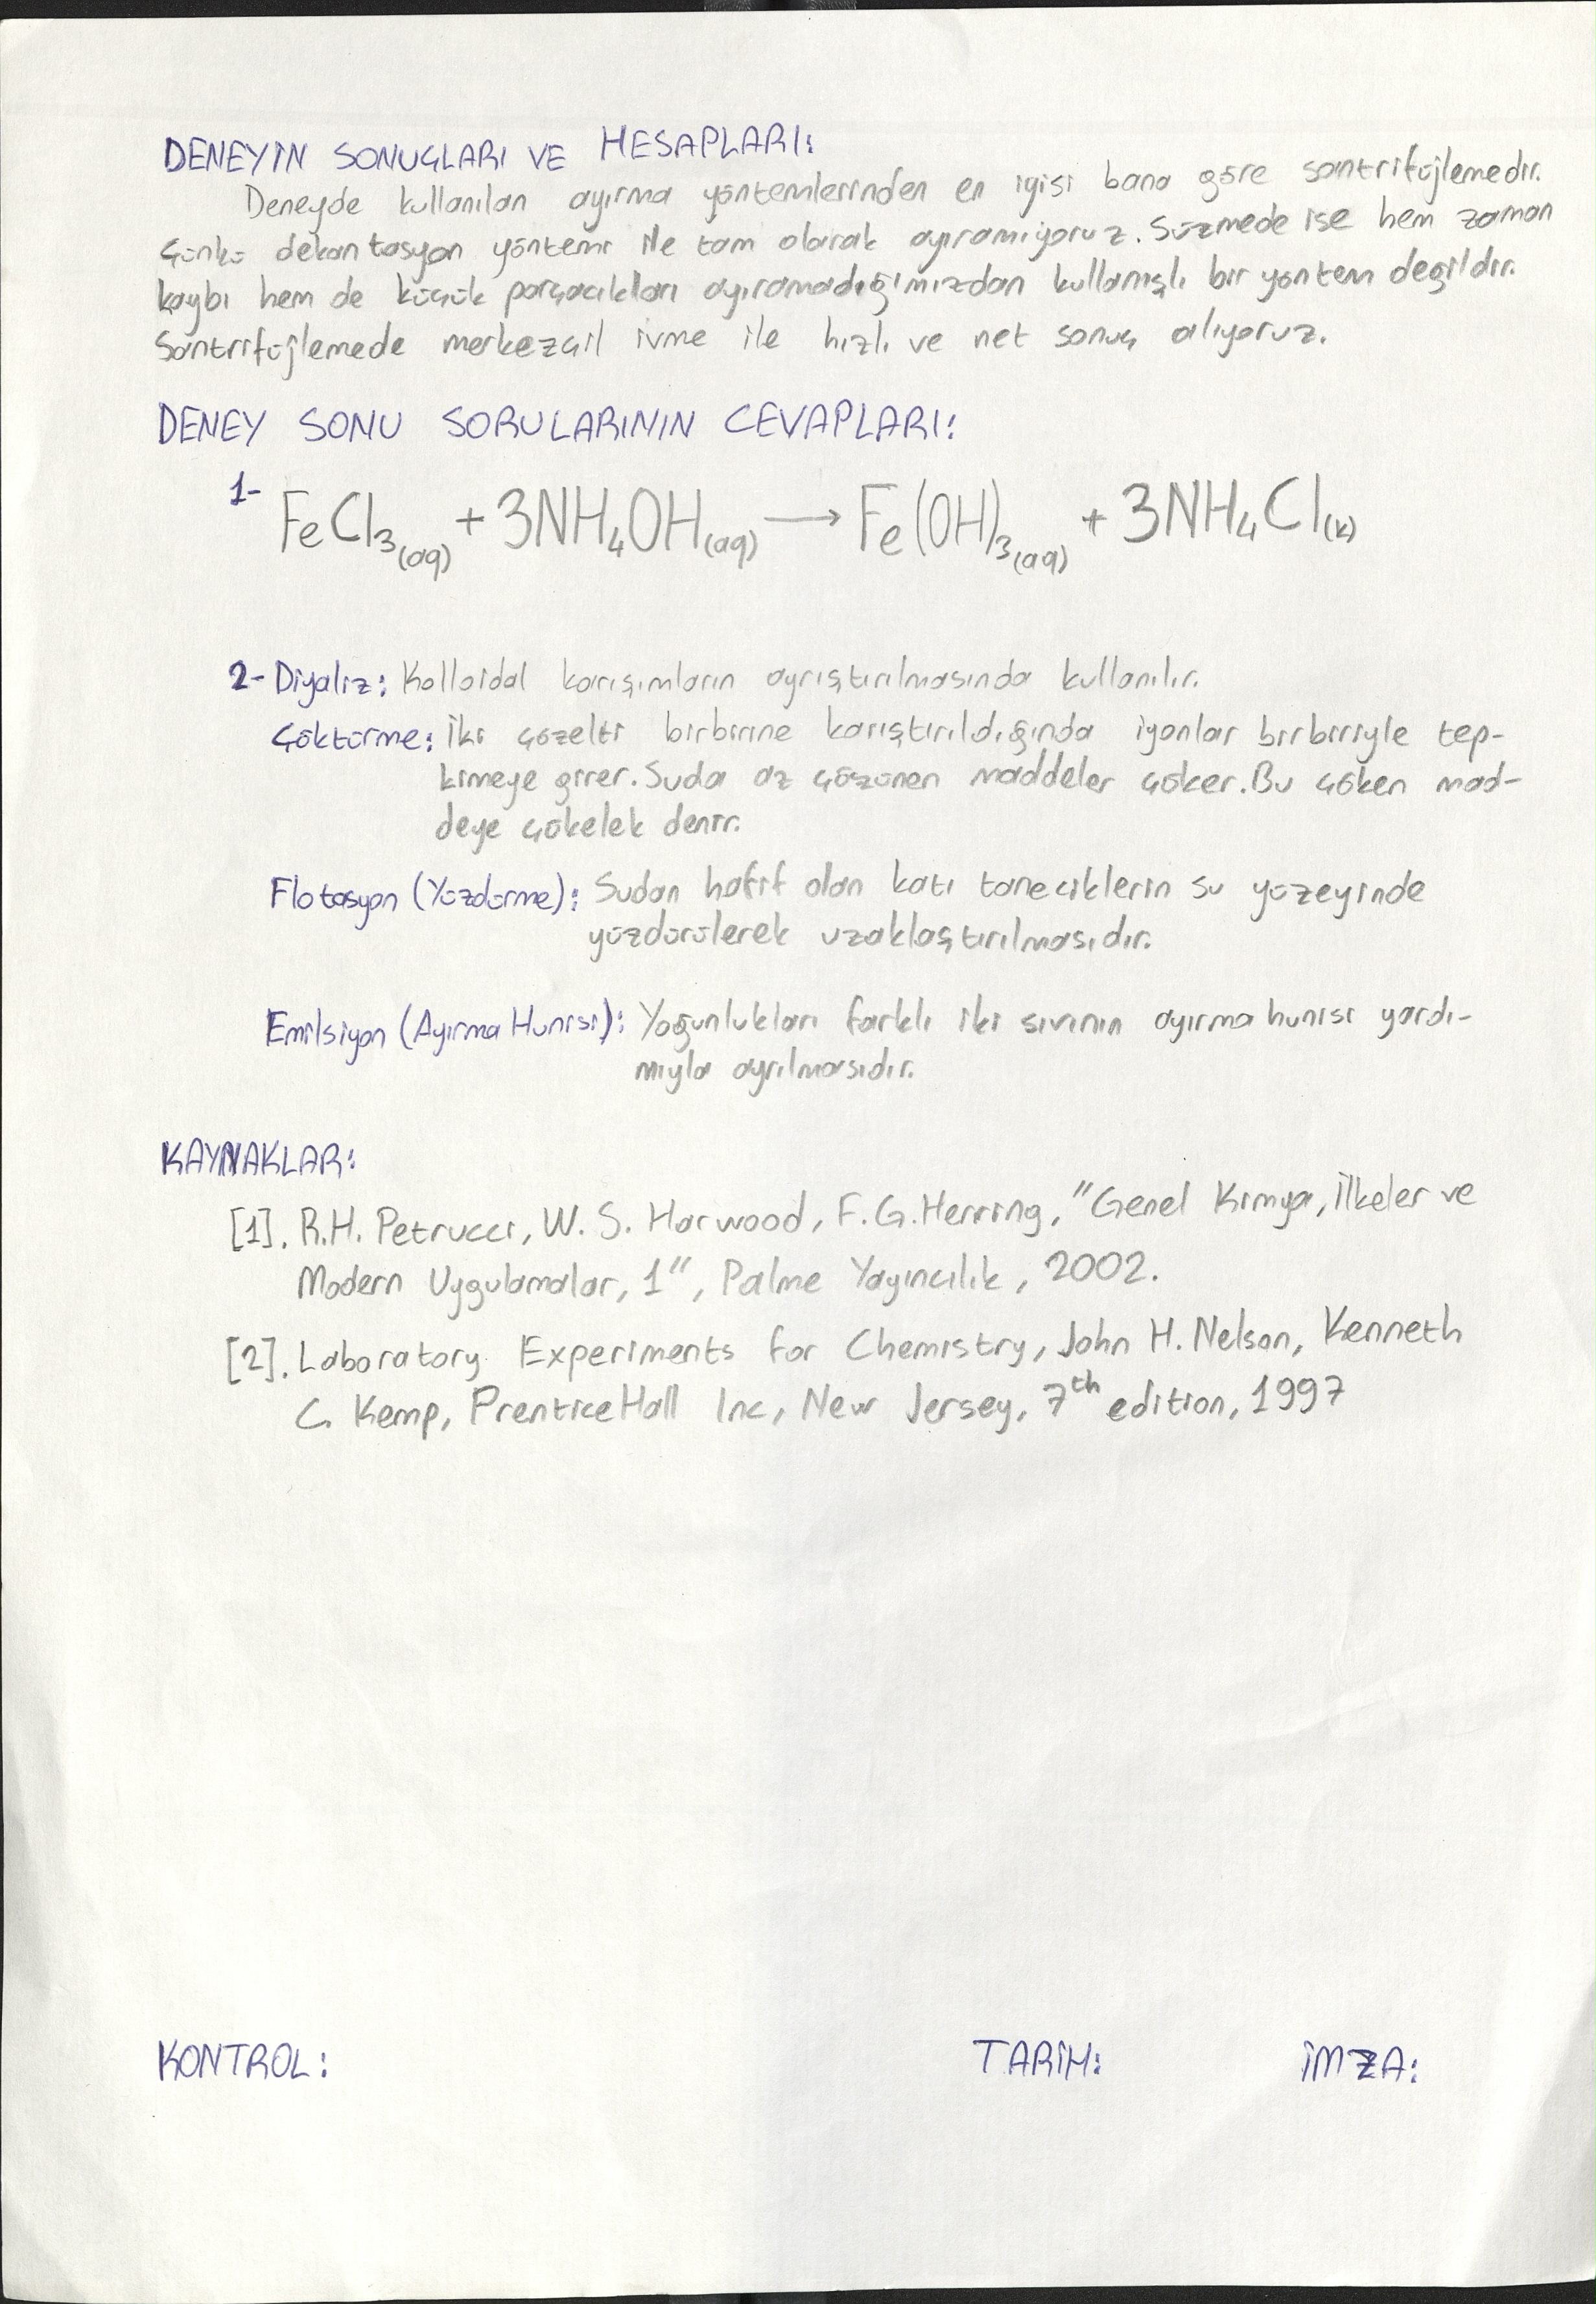 DENEYİN SONUÇLARI VE HESAPLARI:
Deneyde kullanılan ayırma yöntemlerinden en iyisi bana göre santrifüjlemedir.
Çünkü dekantasyon yöntemi ile tam olarak ayıramıyoruz. Süzmede ise hem zaman
kaybı hem de küçük parçacıkları ayıramadığımızdan kullanışlı bir yöntem değildir.
Santrifüjlemede merkezcil ivme ile hızlı ve net sonuç alıyoruz.
DENEY SONU SORULARININ CEVAPLARI:
1- FeCl₃(aq) + 3NH₄OH(aq) → Fe(OH)₃(aq) + 3NH₄Cl(k)
2- Diyaliz: Kolloidal karışımların ayrıştırılmasında kullanılır.
Çöktürme: İki çözelti birbirine karıştırıldığında iyonlar birbiriyle tep-
kimeye girer. Suda az çözünen maddeler çöker. Bu çöken mad-
deye çökelek denir.
Flotasyon (Yüzdürme): Sudan hafif olan katı taneciklerin su yüzeyinde
yüzdürülerek uzaklaştırılmasıdır.
Emilsiyon (Ayırma Hunisi): Yoğunlukları farklı iki sıvının ayırma hunisi yardı-
mıyla ayrılmasıdır.
KAYNAKLAR:
[1]. R.H. Petrucci, W. S. Harwood, F.G.Herring, "Genel Kimya, İlkeler ve
Modern Uygulamalar, 1", Palme Yayıncılık, 2002.
[2]. Laboratory Experiments for Chemistry, John H. Nelson, Kenneth
C. Kemp, Prentice Hall Inc, New Jersey, 7th edition, 1997
KONTROL: TARİH: İMZA: